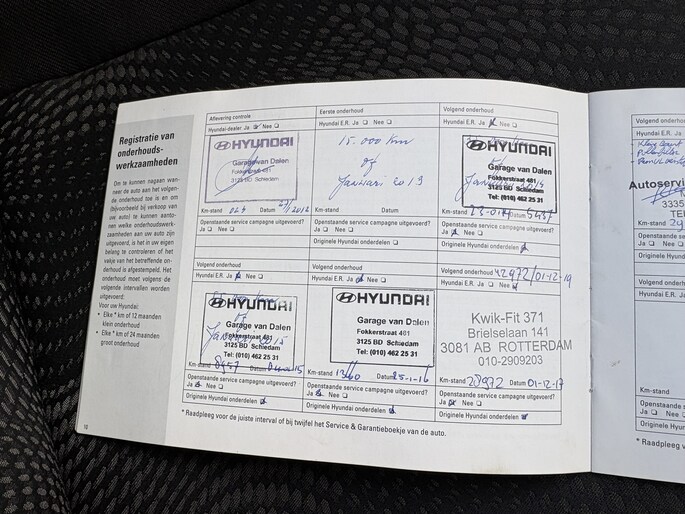 Registratie van
onderhouds-
werkzaamheden
Om te kunnen nagaan wan-
neer de auto aan het volgen-
de onderhoud toe is en om
(bijvoorbeeld bij verkoop van
uw auto) te kunnen aanto-
nen welke onderhoudswerk-
zaamheden aan uw auto zijn
uitgevoerd, is het in uw eigen
belang te controleren of het
vakje van het betreffende on-
derhoud is afgestempeld. Het
onderhoud moet volgens de
volgende intervallen worden
uitgevoerd:
Voor uw Hyundai:
• Elke * km of 12 maanden
klein onderhoud
• Elke * km of 24 maanden
groot onderhoud
10
Aflevering controle
Hyundai-dealer Ja Nee
HYUNDAI
Garage van Dalen
Fokkerstraat 481
3125 BD Schiedam
Km-stand Datum
Openstaande service campagne uitgevoerd?
Ja Nee
Eerste onderhoud
Hyundai E.R. Ja Nee
15.000 km
of
Januari 2013
Km-stand Datum
Openstaande service campagne uitgevoerd?
Ja Nee
Originele Hyundai onderdelen
Volgend onderhoud
Hyundai E.R. Ja Nee
HYUNDAI
Garage van Dalen
Fokkerstraat 481
3125 BD Schiedam
Tel: (010) 462 25 31
Km-stand Datum
Openstaande service campagne uitgevoerd?
Ja Nee
Originele Hyundai onderdelen
Volgend onderhoud
Hyundai E.R. Ja Nee
HYUNDAI
Garage van Dalen
Fokkerstraat 481
3125 BD Schiedam
Tel: (010) 462 25 31
Km-stand
Openstaande service campagne uitgevoerd?
Ja Nee
Originele Hyundai onderdelen
Volgend onderhoud
Hyundai E.R. Ja Nee
HYUNDAI
Garage van Dalen
Fokkerstraat 481
3125 BD Schiedam
Tel: (010) 462 25 31
Km-stand Datum 25-1-16
Openstaande service campagne uitgevoerd?
Ja Nee
Originele Hyundai onderdelen
Volgend onderhoud
Hyundai E.R. Ja Nee
Kwik-Fit 371
Brielselaan 141
3081 AB ROTTERDAM
010-2909203
Km-stand Datum 01-12-17
Openstaande service campagne uitgevoerd?
Ja Nee
Originele Hyundai onderdelen
* Raadpleeg voor de juiste interval of bij twijfel het Service & Garantieboekje van de auto.
Volgend
Hyundai E.R.
Autoserv
3335
TE
Km-stand
Openstaande
Ja Nee
Originele Hyund
Volgend onderh
Hyundai E.R. Ja
Km-stand
Openstaande s
Ja Nee
Originele Hyund
* Raadpleeg